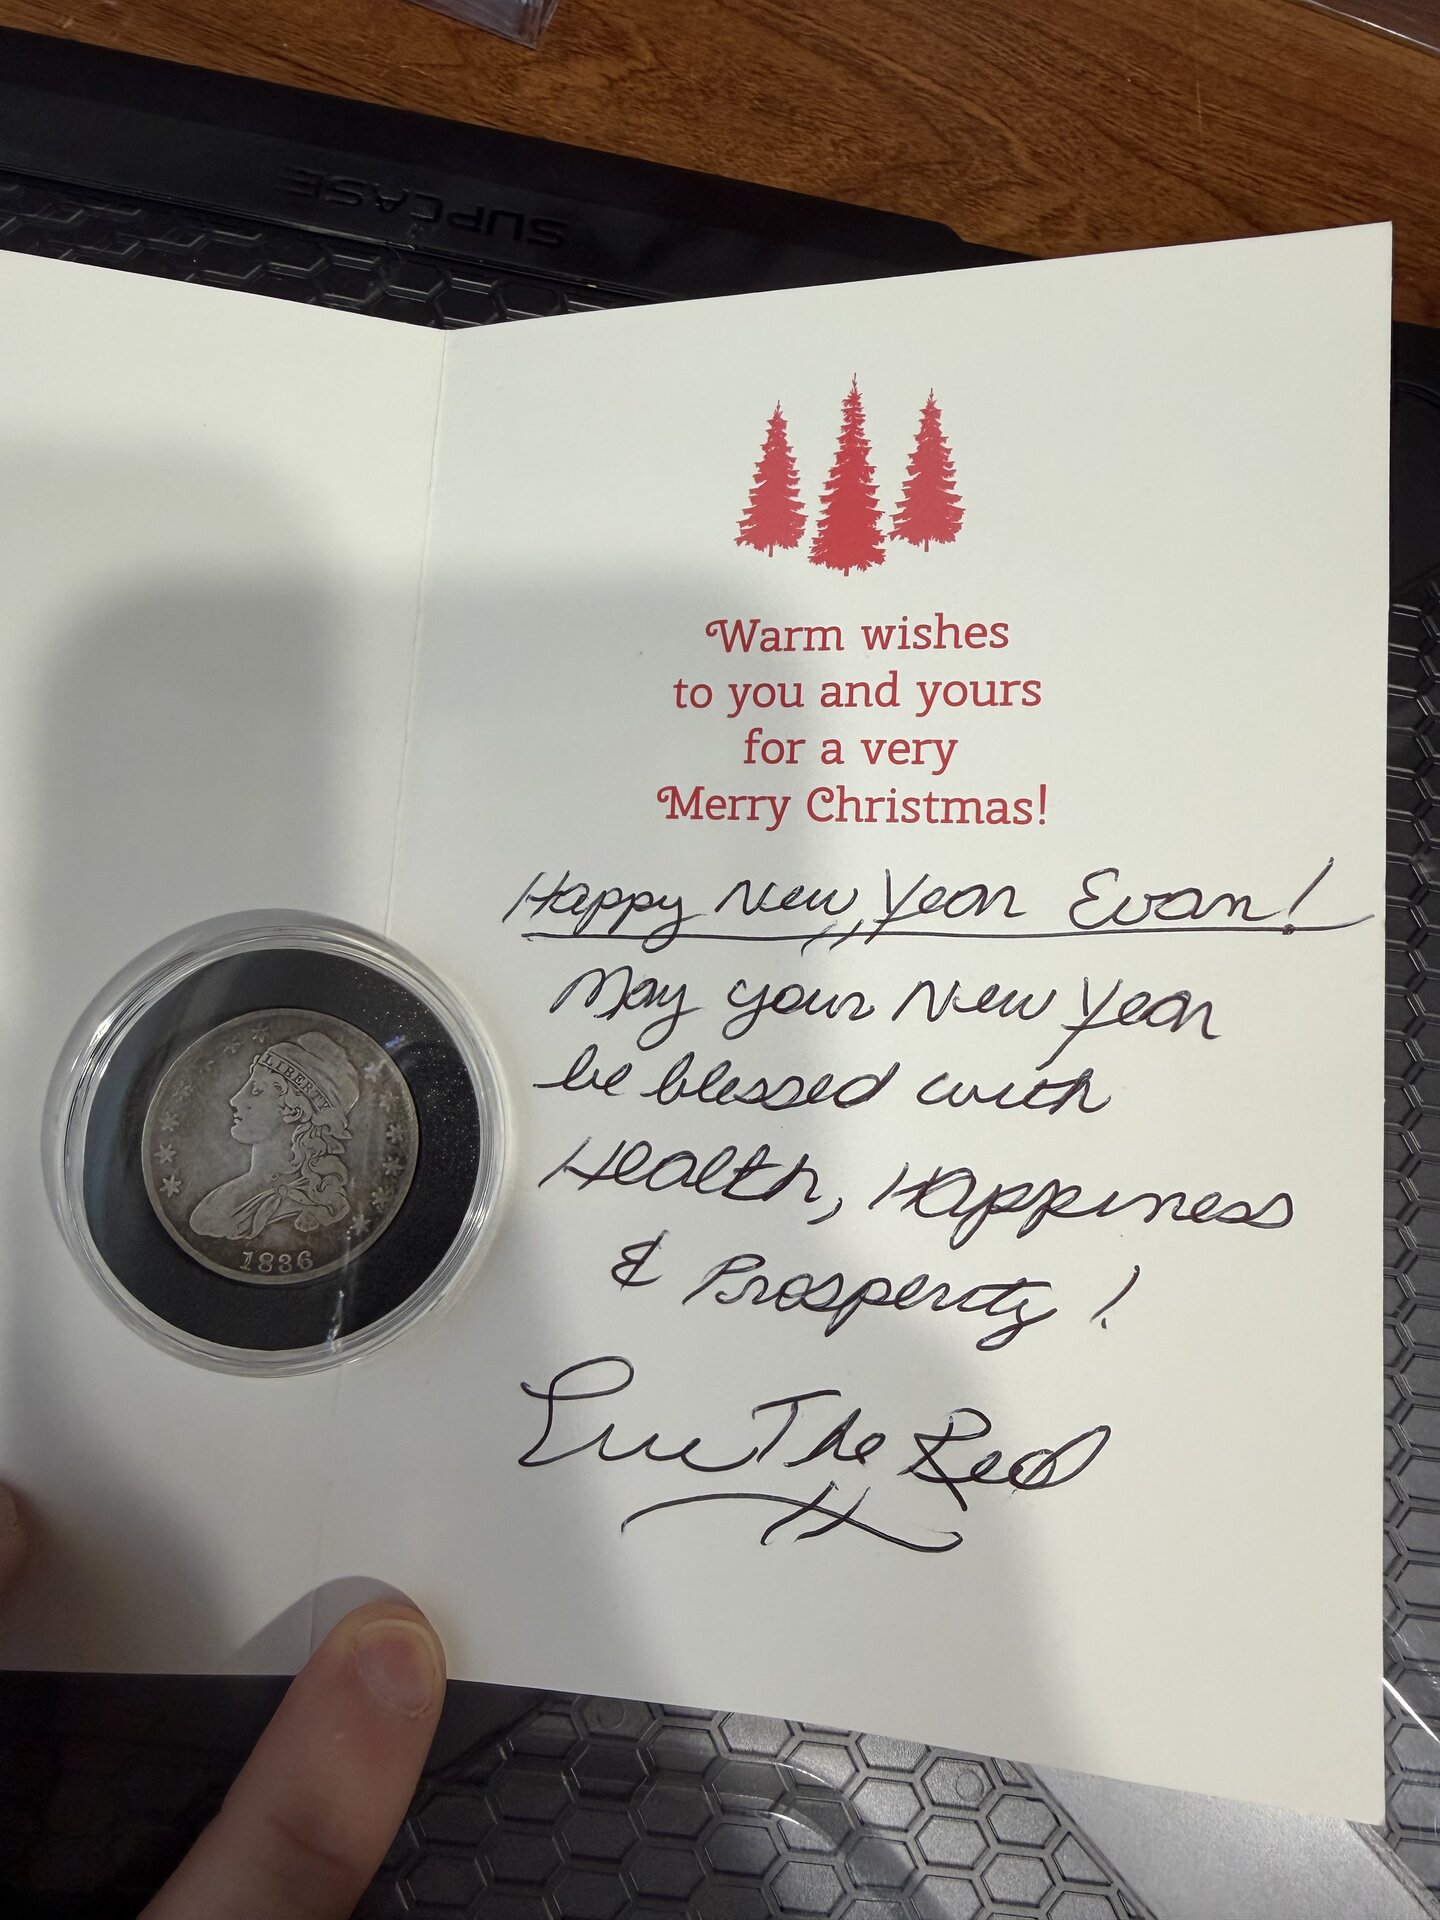 SUPCASE
Warm wishes
to you and yours
for a very
Merry Christmas!
Happy New Year Evan!
May your New Year
be blessed with
Health, Happiness
& Prosperity!
The Red
LIBERTY
1836